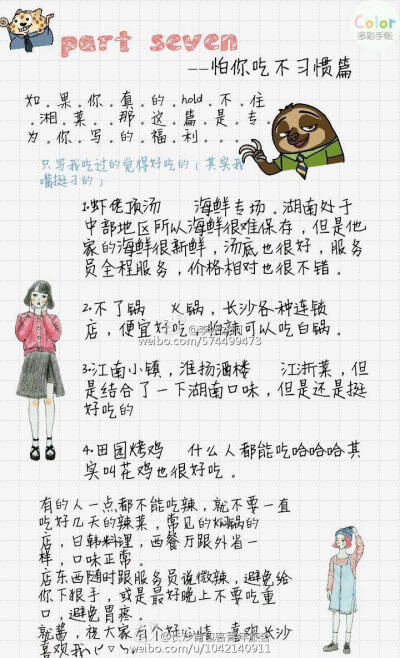 Color
多彩手账
part seven
--怕你吃不习惯篇
如.果.你.真.的.hold.不.住
.湘.菜.那.这.篇.是.专.
为.你.写.的.福.利...
只写我吃过的觉得好吃的(其实我
嘴挺刁的)
1.虾佬顶汤 海鲜专场.湖南处于
中部地区所以海鲜很难保存，但是他
家的海鲜很新鲜，汤底也很好，服务
员全程服务，价格相对也很不错。
2.不了锅 火锅，长沙各种连锁
店，便宜好吃，怕辣可以吃白锅。
weibo.com/574499473
3.江南小镇，淮扬酒楼 江浙菜，但
是结合了一下湖南口味，但是还是挺
好吃的
4.田园烤鸡 什么人都能吃哈哈哈其
实叫花鸡也很好吃。
有的人一点都不能吃辣，就不要一直
吃好几天的辣菜，常见的焖锅的
店，日韩料理，西餐厅跟外省一
样，口味正常。
店东西随时跟服务员说微辣，避免给
你下狠手，或是最好晚上不要吃重
口，避免胃疼。
就酱，祝大家有个好心情，喜欢长沙
喜欢我(
weibo.com/u/1042140911